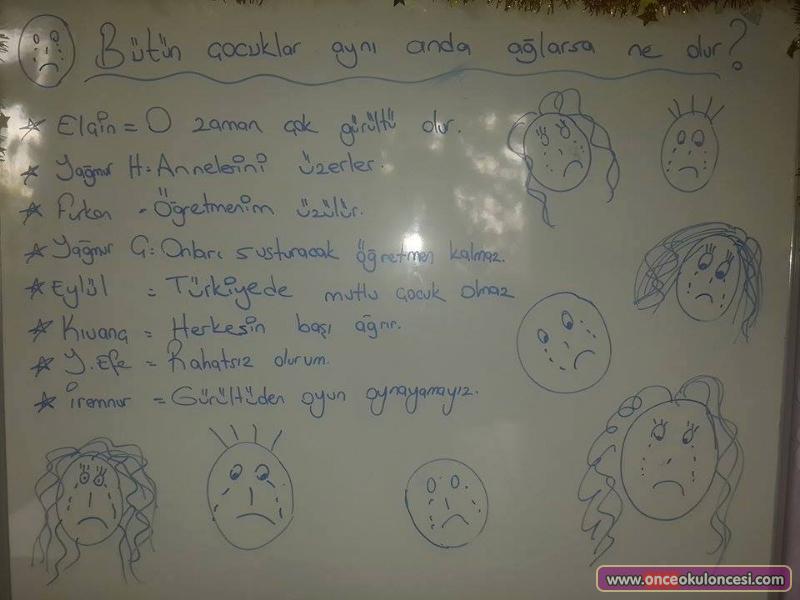 Bütün çocuklar aynı anda ağlarsa ne olur?
Elçin = O zaman çok gürültü olur.
Yağmur H = Annelerini üzerler.
Furkan = Öğretmenim üzülür.
Yağmur G = Onları susturacak öğretmen kalmaz.
Eylül = Türkiyede mutlu çocuk olmaz
Kıvanç = Herkesin başı ağrır.
Y. Efe = Rahatsız olurum.
İremnur = Gürültüden oyun oynayamayız.
www.onceokuloncesi.com